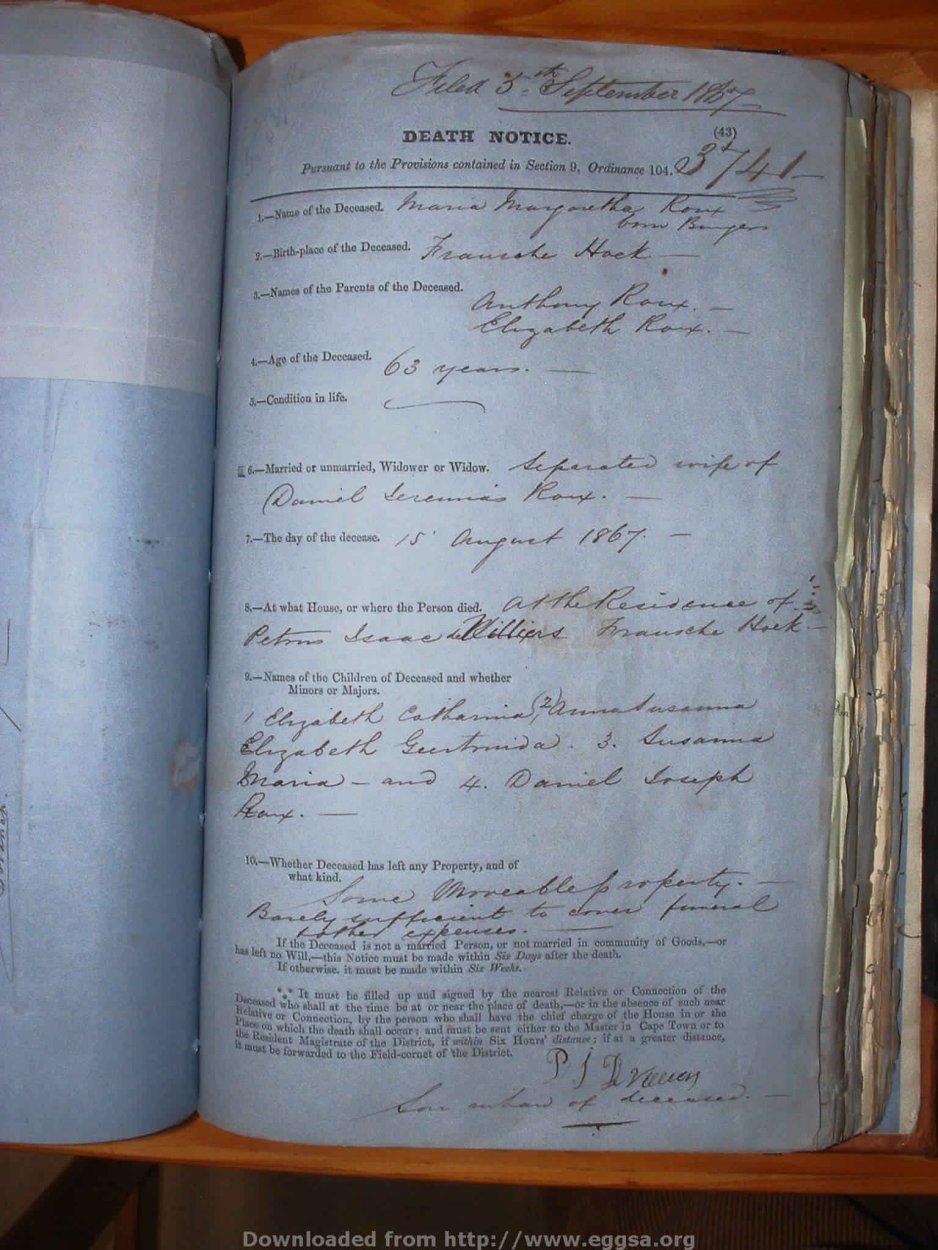 Filed 5th September 1867
DEATH NOTICE.
(43)
Pursuant to the Provisions contained in Section 9, Ordinance 104.
3741
1.—Name of the Deceased. Maria Margaretha Roux
born
2.—Birth-place of the Deceased. Fransche Hoek
3.—Names of the Parents of the Deceased.
Anthony Roux.—
Elizabeth Roux.—
4.—Age of the Deceased. 63 years.—
5.—Condition in life.
6.—Married or unmarried, Widower or Widow. Separated wife of
Daniel Jeremias Roux.—
7.—The day of the decease. 15 August 1867.—
8.—At what House, or where the Person died. At the Residence of
Petrus Isaac de Villiers Fransche Hoek—
9.—Names of the Children of Deceased and whether
Minors or Majors.
1 Elizabeth Catharina, 2) Anna Susanna
Elizabeth Geertruida. 3. Susanna
Maria—and 4. Daniel Joseph
Roux.—
10.—Whether Deceased has left any Property, and of
what kind.
Some Moveable property.—
Barely sufficient to cover funeral
& other expenses.—
If the Deceased is not a married Person, or not married in community of Goods,—or
has left no Will,—this Notice must be made within Six Days after the death.
If otherwise, it must be made within Six Weeks.
*** It must be filled up and signed by the nearest Relative or Connection of the
Deceased who shall at the time be at or near the place of death,—or in the absence of such near
Relative or Connection, by the person who shall have the chief charge of the House in or the
Place on which the death shall occur; and must be sent either to the Master in Cape Town or to
the Resident Magistrate of the District, if within Six Hours' distance; if at a greater distance,
it must be forwarded to the Field-cornet of the District.
P J
Son in law of deceased.—
Downloaded from http://www.eggsa.org